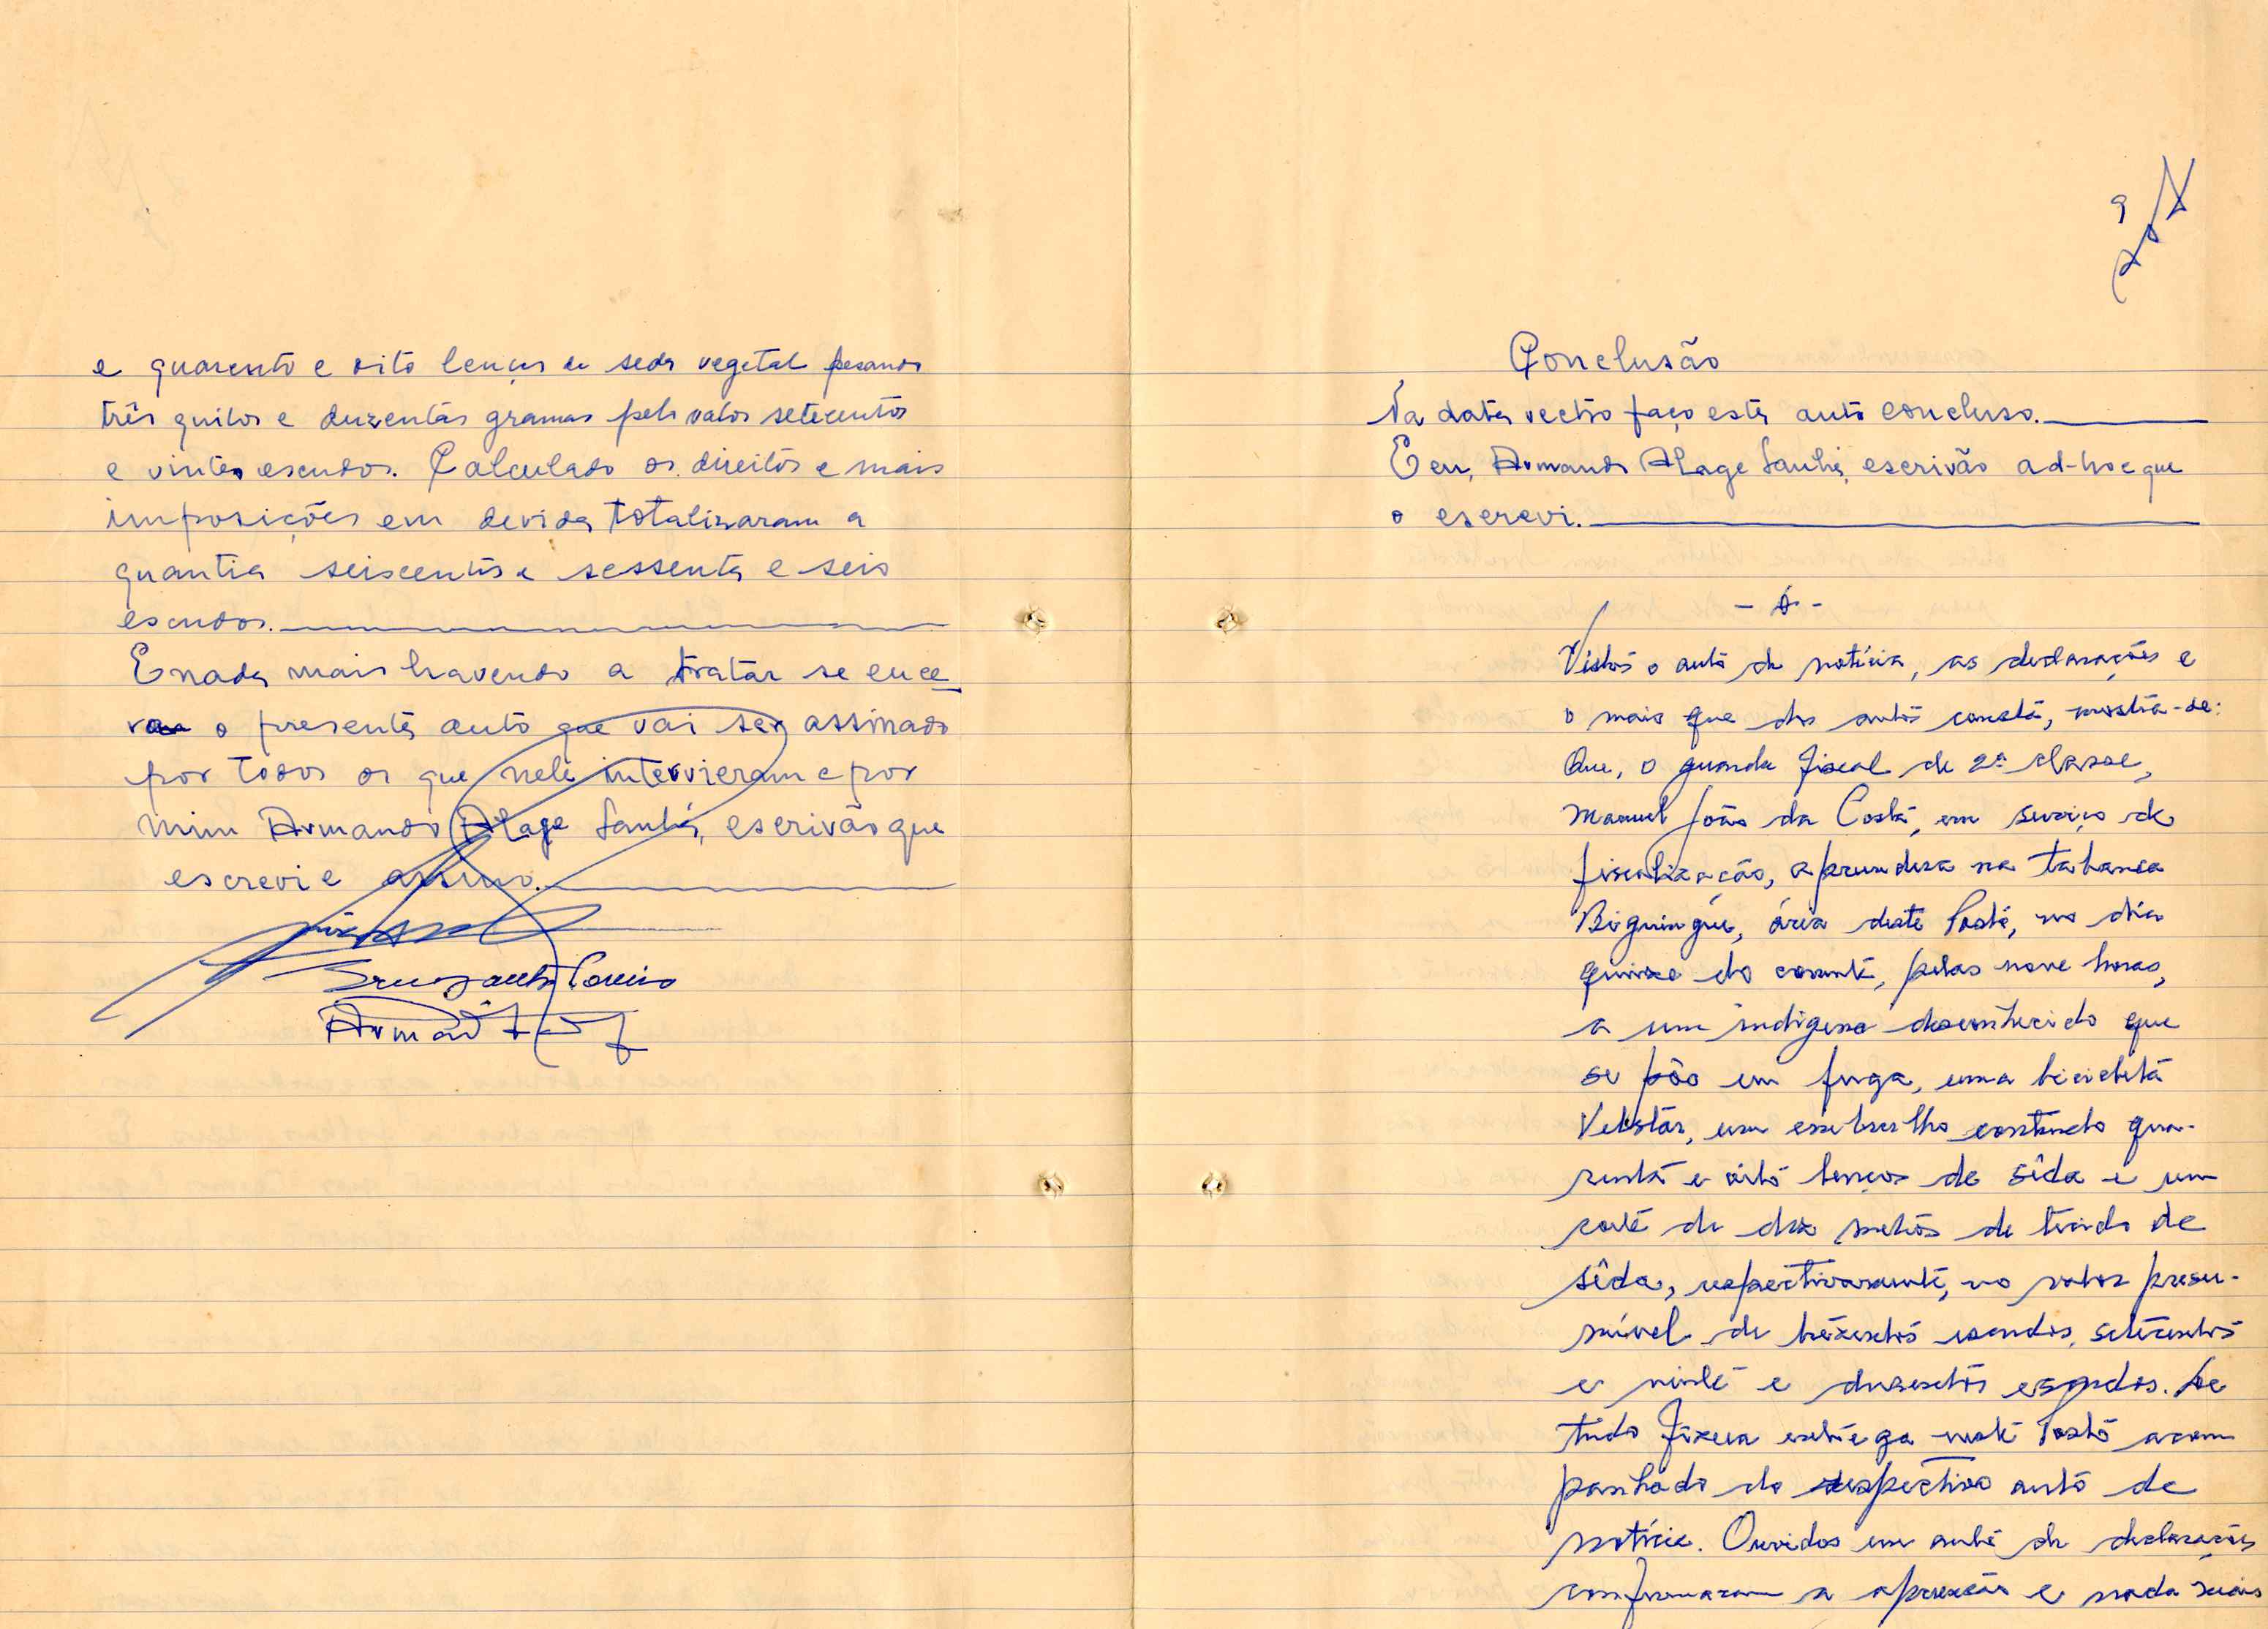 e quarenta e oito lenços de seda vegetal pesando
três quilos e duzentas gramas pelo valor setecentos
e vintes escudos. Calculado os direitos e mais
imposições em devida totalizaram a
quantia seiscentos e sessenta e seis
escudos.
E nada mais havendo a tratar se ence_
rra o presente auto que vai ser assinado
por todos os que nele intervieram e por
mim Armando Alage Sanhá, escrivão que
escrevi e assino.
Armando
9
Conclusão
Na data rectro faço este auto concluso.
E eu, Armando Alage Sanhá, escrivão ad-hoc que
o escrevi.
Vistos o auto de notícia, as declarações e
o mais que dos autos consta, mostra-se:
Que, o guarda fiscal de 2ª classe,
Manuel João da Costa, em serviço de
fiscalização, aprendera na tabanca
Biguingue, área deste Posto, no dia
quinze do corrente, pelas nove horas,
a um indígena desconhecido que
se pôs em fuga, uma bicicleta
Velstar, um embrulho contendo qua-
renta e oito lenços de sêda e um
corte de dez metros de tecido de
sêda, respectivamente, no valor presu-
mível de trezentos escudos, setecentos
e vinte e duzentos escudos. De
tudo fizera entrega neste Posto acom
panhado do respectivo auto de
notícia. Ouvidos em auto de declarações
confirmaram a apreensão e nada mais